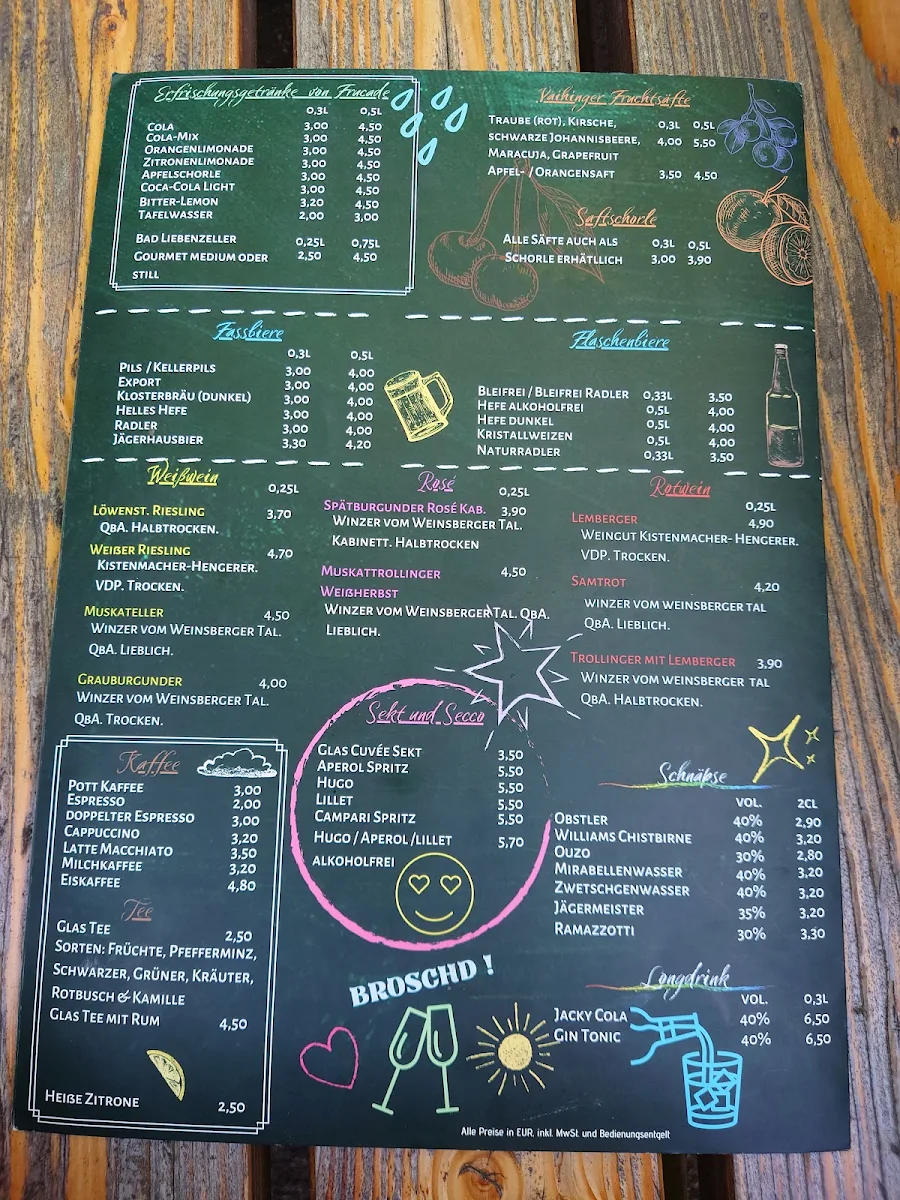 Erfrischungsgetränke von Frucade
0,3L 0,5L
Cola 3,00 4,50
Cola-Mix 3,00 4,50
Orangenlimonade 3,00 4,50
Zitronenlimonade 3,00 4,50
Apfelschorle 3,00 4,50
Coca-Cola Light 3,00 4,50
Bitter-Lemon 3,20 4,50
Tafelwasser 2,00 3,00
Bad Liebenzeller 0,25L 0,75L
Gourmet medium oder 2,50 4,50
still
Vaihinger Fruchtsäfte
Traube (rot), Kirsche, 0,3L 0,5L
schwarze Johannisbeere, 4,00 5,50
Maracuja, Grapefruit
Apfel- / Orangensaft 3,50 4,50
Saftschorle
Alle Säfte auch als 0,3L 0,5L
Schorle erhätllich 3,00 3,90
Fassbiere
0,3L 0,5L
Pils / Kellerpils 3,00 4,00
Export 3,00 4,00
Klosterbräu (dunkel) 3,00 4,00
Helles Hefe 3,00 4,00
Radler 3,00 4,00
Jägerhausbier 3,30 4,20
Flaschenbiere
Bleifrei / Bleifrei Radler 0,33L 3,50
Hefe alkoholfrei 0,5L 4,00
Hefe dunkel 0,5L 4,00
Kristallweizen 0,5L 4,00
Naturradler 0,33L 3,50
Weißwein
0,25L
Löwenst. Riesling 3,70
QbA. Halbtrocken.
Weißer Riesling 4,70
Kistenmacher-Hengerer.
VDP. Trocken.
Muskateller 4,50
Winzer vom Weinsberger Tal.
QbA. Lieblich.
Grauburgunder 4,00
Winzer vom Weinsberger Tal.
QbA. Trocken.
Rosé
0,25L
Spätburgunder Rosé Kab. 3,90
Winzer vom Weinsberger Tal.
Kabinett. Halbtrocken
Muskattrollinger 4,50
Weißherbst
Winzer vom Weinsberger Tal. QbA.
Lieblich.
Rotwein
0,25L
Lemberger 4,90
Weingut Kistenmacher- Hengerer.
VDP. Trocken.
Samtrot 4,20
winzer vom weinsberger tal
QbA. Lieblich.
Trollinger mit Lemberger 3,90
Winzer vom weinsberger tal
QbA. Halbtrocken.
Kaffee
Pott Kaffee 3,00
Espresso 2,00
doppelter Espresso 3,00
Cappuccino 3,20
Latte Macchiato 3,50
Milchkaffee 3,20
Eiskaffee 4,80
Tee
Glas Tee 2,50
Sorten: Früchte, Pfefferminz,
Schwarzer, Grüner, Kräuter,
Rotbusch & Kamille
Glas Tee mit Rum 4,50
Heiße Zitrone 2,50
Sekt und Secco
Glas Cuvée Sekt 3,50
Aperol Spritz 5,50
Hugo 5,50
Lillet 5,50
Campari Spritz 5,50
Hugo / Aperol /lillet 5,70
alkoholfrei
BROSCHD !
Schnäpse
vol. 2cl
Obstler 40% 2,90
Williams Chistbirne 40% 3,20
Ouzo 30% 2,80
Mirabellenwasser 40% 3,20
Zwetschgenwasser 40% 3,20
Jägermeister 35% 3,20
Ramazzotti 30% 3,30
Longdrink
vol. 0,3l
Jacky Cola 40% 6,50
Gin Tonic 40% 6,50
Alle Preise in EUR, inkl. MwSt. und Bedienungsentgelt